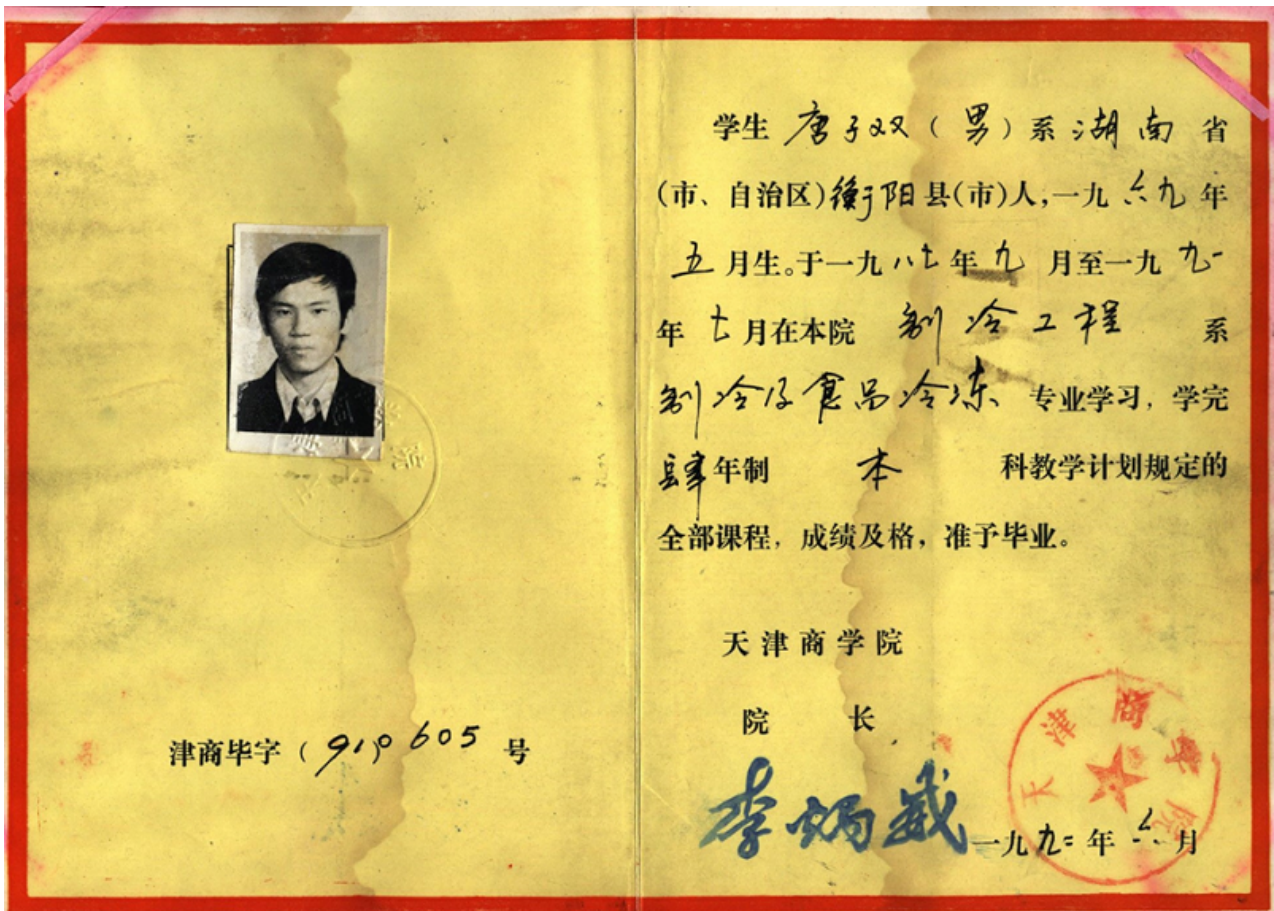 津商毕字(91)0605号
学生 唐子双(男)系湖南省
(市、自治区)衡阳县(市)人,一九六九年
五月生。于一九八七年九月至一九九一
年七月在本院 制冷工程 系
制冷及食品冷冻 专业学习,学完
肆年制 本 科教学计划规定的
全部课程,成绩及格,准予毕业。
天津商学院
院 长
李
一九九二年六月
天津商学院